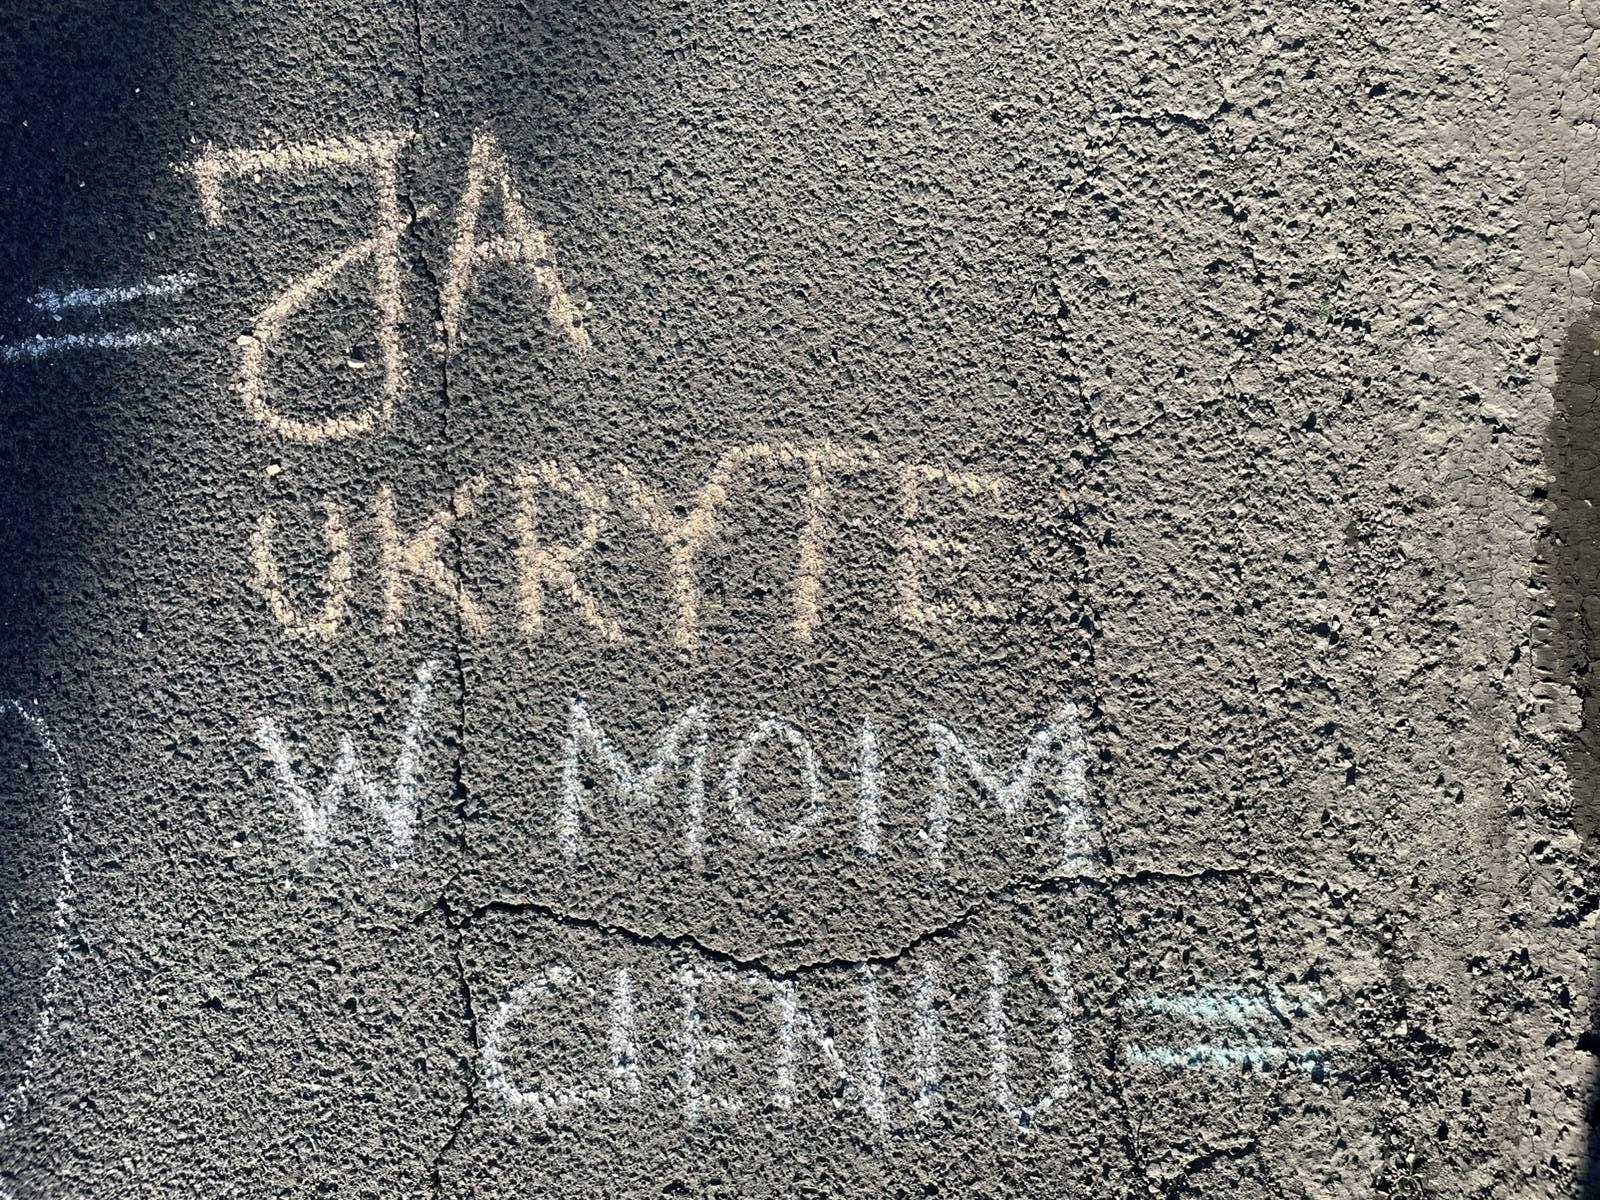 JA
UKRYTE
W MOIM
CIENIU =